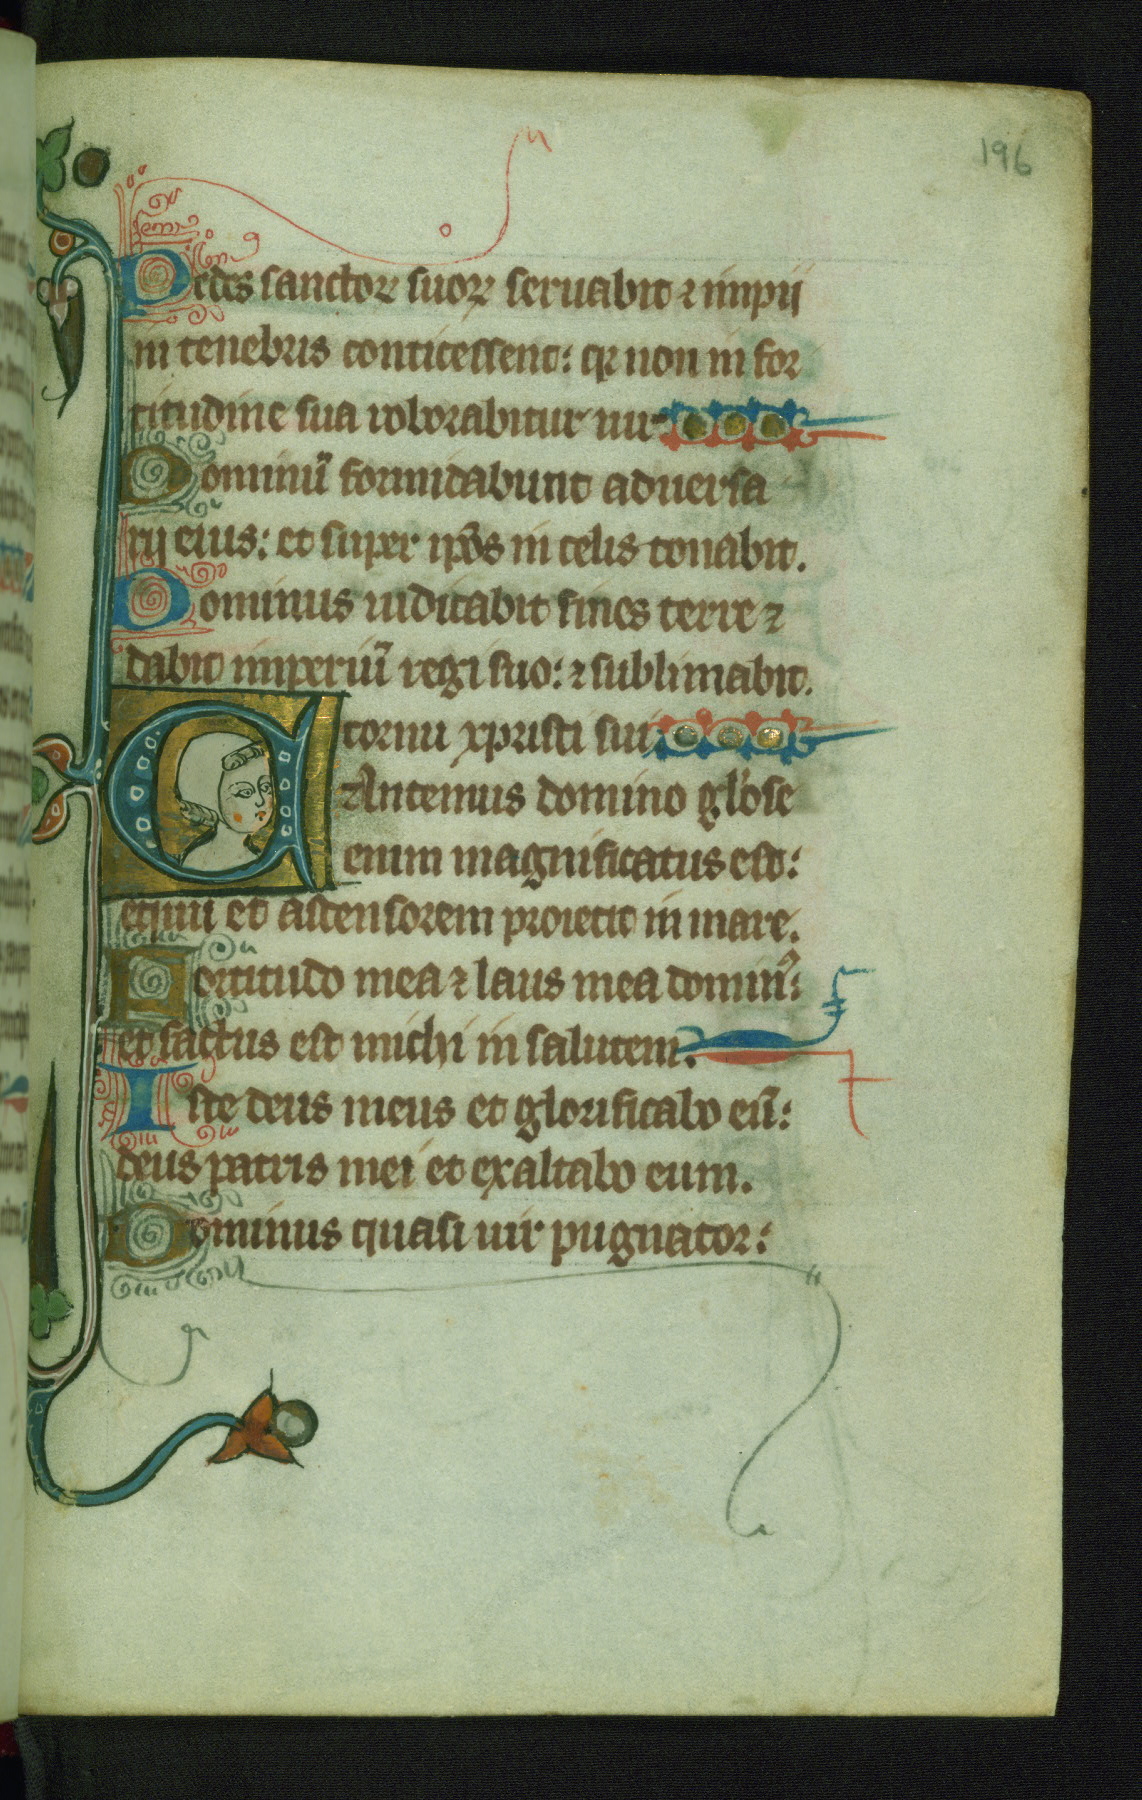 196
Pedes sanctoꝝ suoꝝ seruabit ⁊ impij
in tenebris conticessent: qꝛ non in for
titudine sua roborabitur uir
Dominū formidabunt aduersa
rij eius: et super ip̄os in celis tonabit.
Dominus iudicabit fines terre ⁊
dabit imperiū regi suo: ⁊ sublimabit.
cornu xpristi sui
CAntemus domino gl'ose
enim magnificatus est:
equum et ascensorem proiecit in mare.
Fortitudo mea ⁊ laus mea dominꝰ:
et factus est michi in salutem.
Iste deus meus et glorificabo eū:
deus patris mei et exaltabo eum.
Dominus quasi uir pugnator: